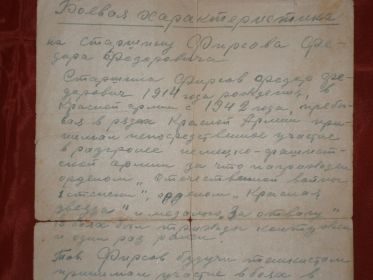 Боевая характеристика
на старшину Фирсова Фе-
дора Федоровича
Старшина Фирсов Федор Фе-
дорович 1914 года рождения, в
Красной армии с 1942 года, пребы-
вая в рядах Красной Армии при-
нимал непосредственное участие
в разгроме немецко-фашист-
ской армии за что награжден
орденом "Отечественной войны
1 степени", орденом "Красная
звезда" и медалью "За отвагу"
был трижды контужен
и один раз ранен.
Тов. Фирсов будучи
принимал участие в боях в